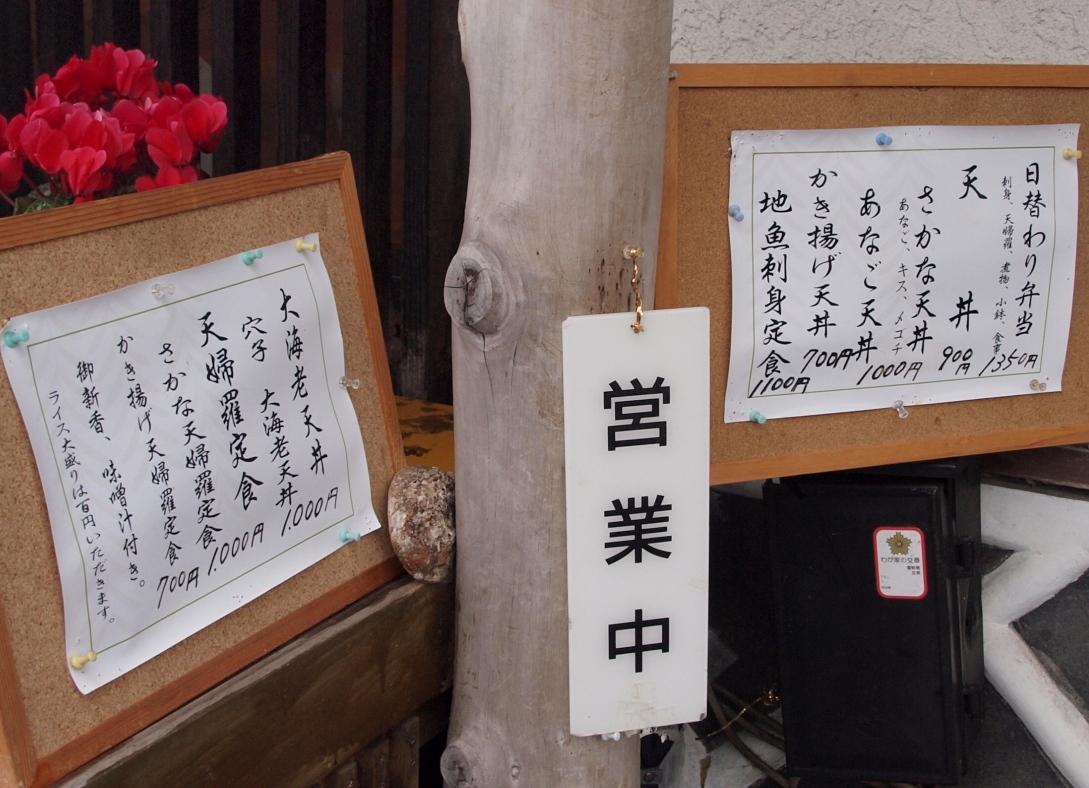 日替わり弁当 1350円
刺身、天婦羅、煮物、小鉢、食事
天丼 900円
さかな天丼 1000円
あなご、キス、メコチ
あなご天丼
かき揚げ天丼 700円
地魚刺身定食 1100円
営業中
大海老天丼 1.000円
穴子 大海老天丼
天婦羅定食 1.000円
さかな天婦羅定食
かき揚げ天婦羅定食 700円
御新香、味噌汁付き。
ライス大盛りは百円いただきます。
わが家の交番